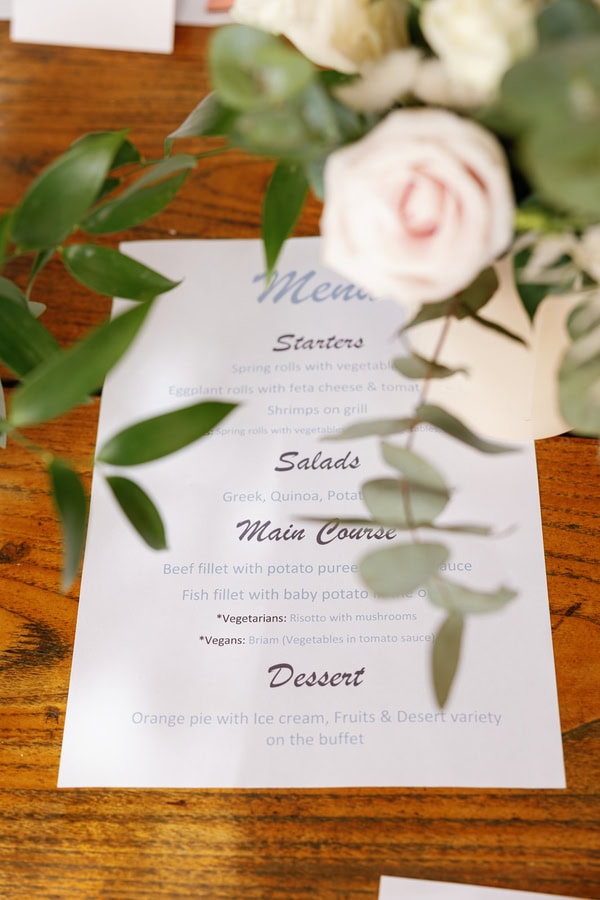 Menu
Starters
Spring rolls with vegetab
Eggplant rolls with feta cheese & tomat
Shrimps on grill
Spring rolls with vegetables
Salads
Greek, Quinoa, Potat
Main Course
Beef fillet with potato puree sauce
Fish fillet with baby potato
*Vegetarians: Risotto with mushrooms
*Vegans: Briam (Vegetables in tomato sauce)
Dessert
Orange pie with Ice cream, Fruits & Desert variety
on the buffet